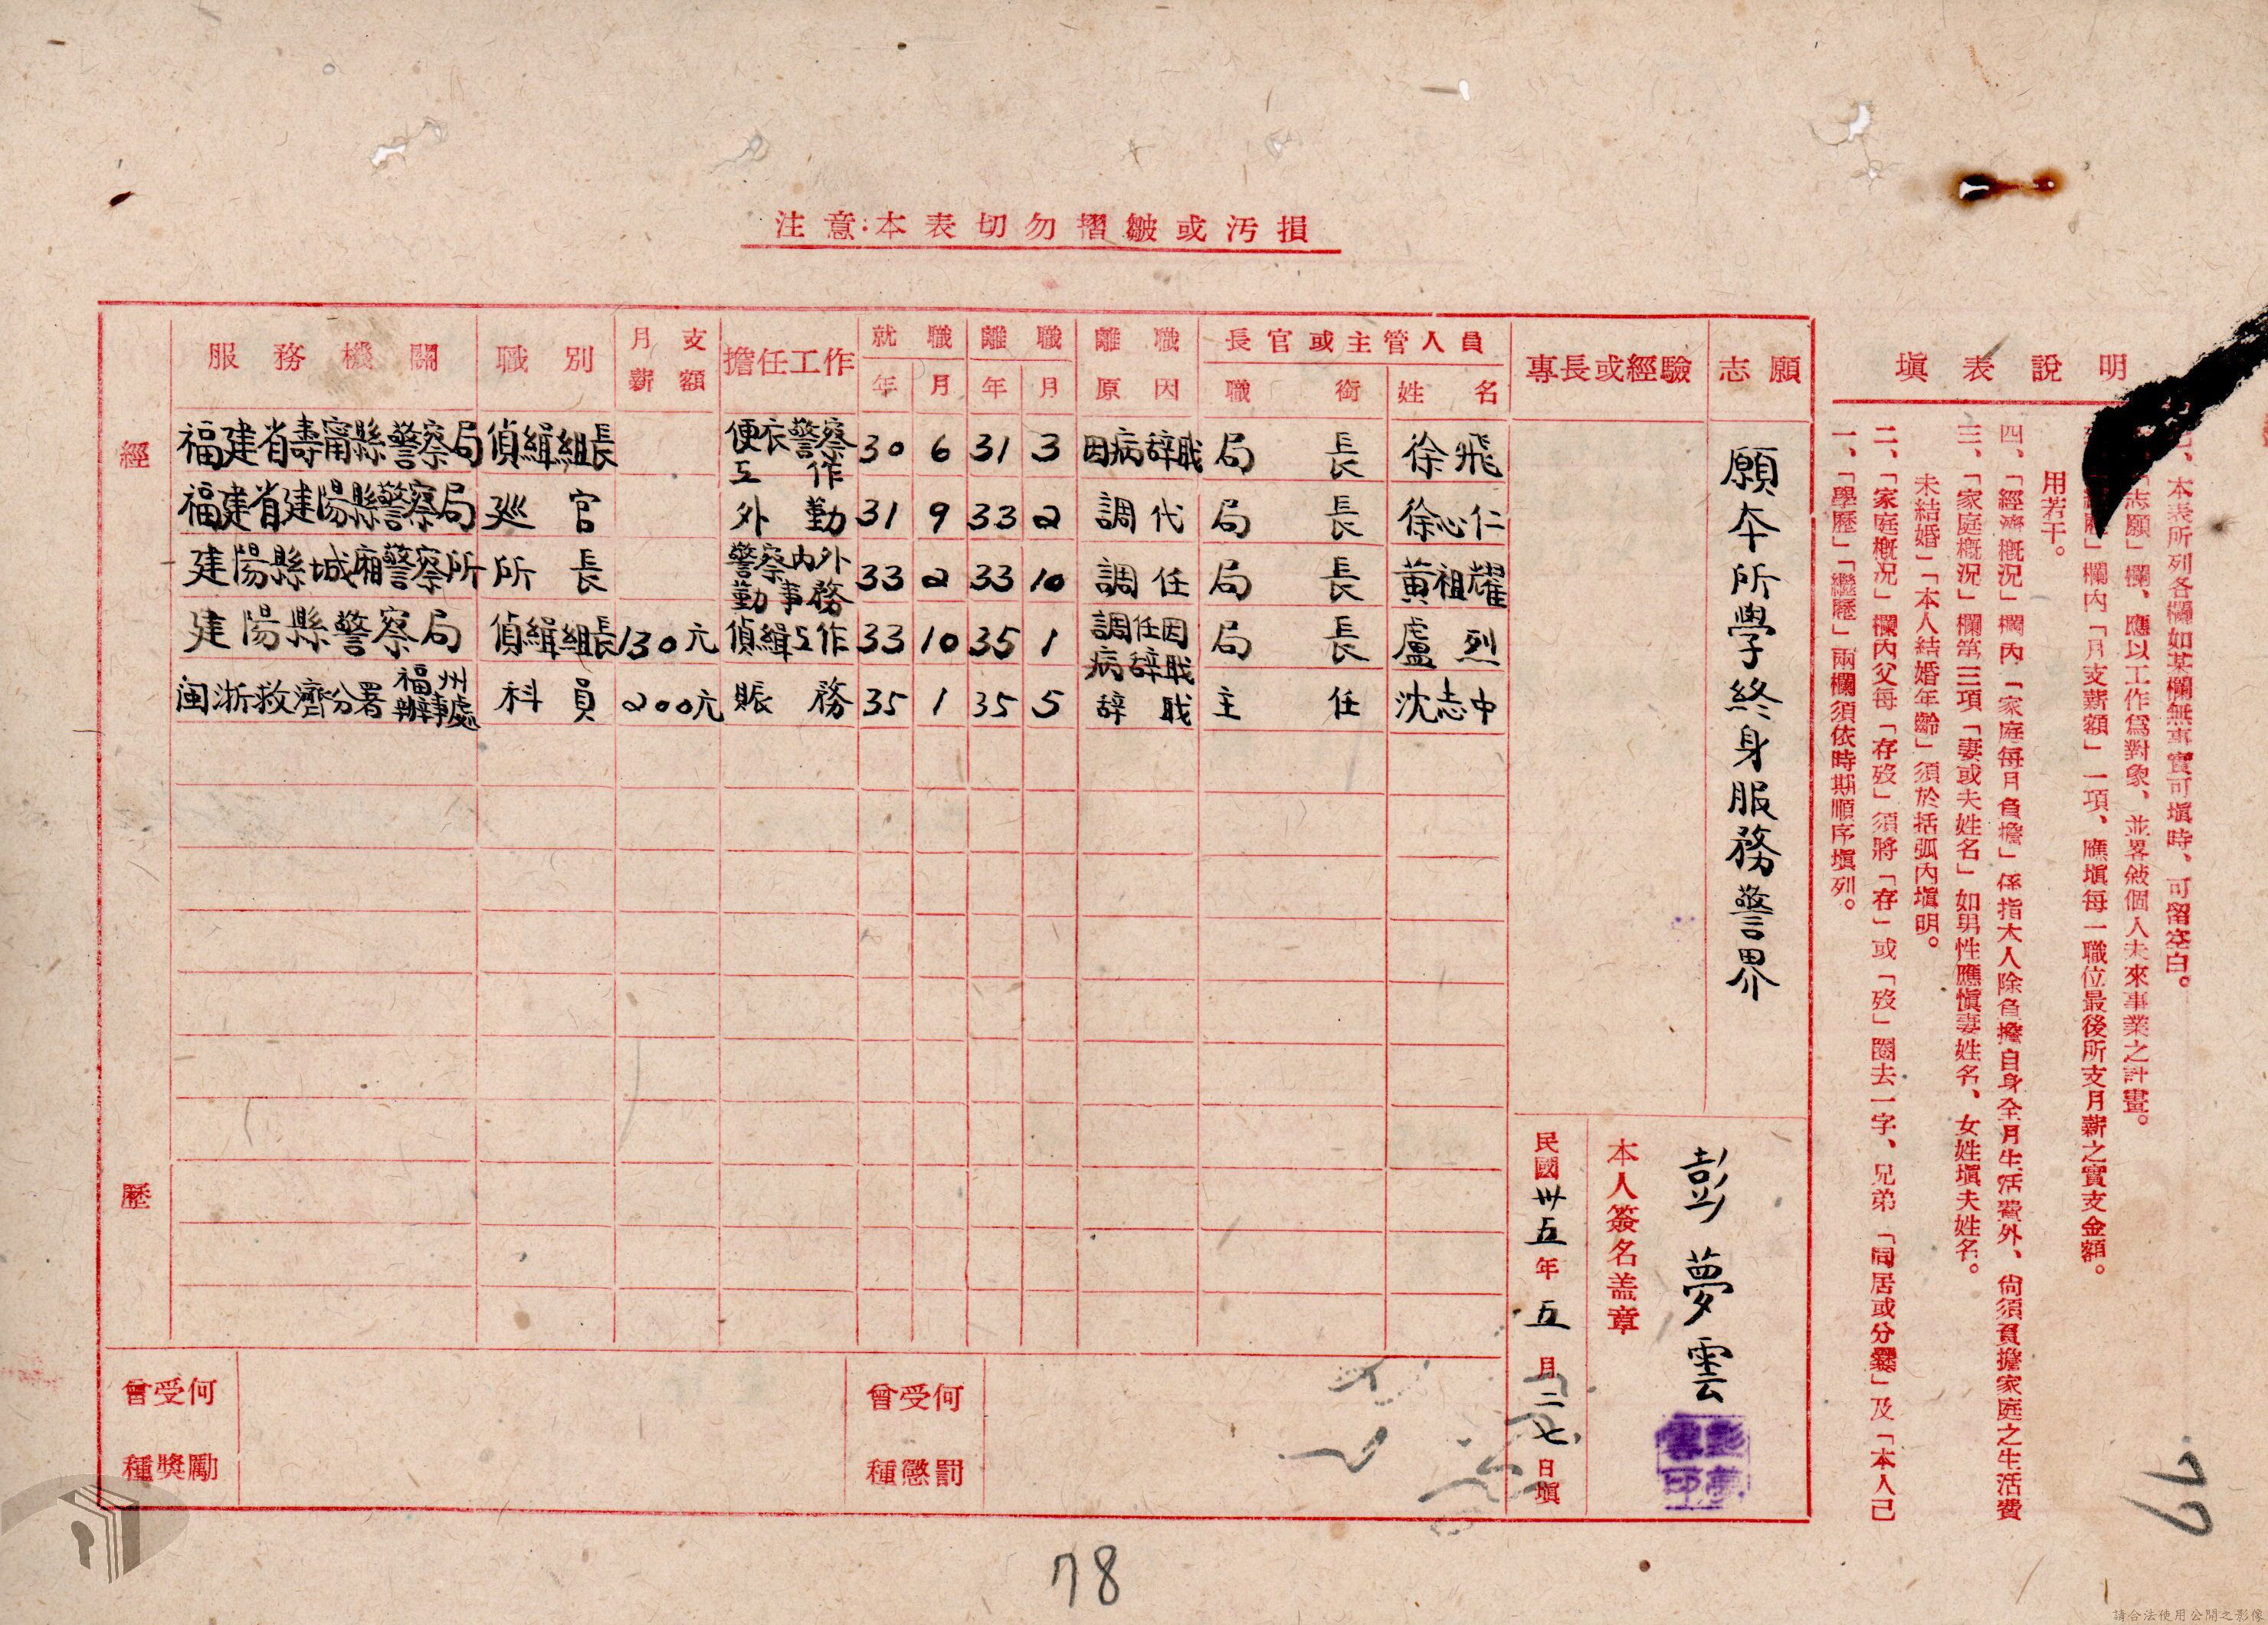 注意：本表切勿摺皺或污損
服務機關 職別 月支薪額 擔任工作 就職年月 離職年月 離職原因 長官或主管人員 職銜 姓名 專長或經驗 志願
經歷
福建省壽甯縣警察局 偵緝組長 便衣警察工作 30 6 31 3 因病辞職 局長 徐飛
福建省建陽縣警察局 巡官 外勤 31 9 33 2 調代 局長 徐心仁
建陽縣城廂警察所 所長 警察内外勤事務 33 2 33 10 調任 局長 黄祖耀
建陽縣警察局 偵緝組長 130元 偵緝工作 33 10 35 1 調任因病辞職 局長 盧烈
闽浙救濟分署福州辦事處 科員 200元 賑務 35 1 35 5 辞职 主任 沈志中
願本所學終身服務警界
本人簽名盖章 彭夢雲
彭夢雲印
民國卅五年五月二七日填
曾受何種獎勵
曾受何種懲罰
填表說明
一、「學歷」「經歷」兩欄須依時期順序塡列。
二、「家庭槪况」欄內父每「存歿」須將「存」或「歿」圈去一字、兄弟「同居或分爨」及「本人已
未結婚」「本人結婚年齡」須於括弧內塡明。
三、「家庭槪况」欄第三項「妻或夫姓名」如男性應愼妻姓名、女姓塡夫姓名。
四、「經濟槪况」欄內「家庭每月負擔」係指本人除負擔自身全月生活費外、尙須負擔家庭之生活費
用若干。
欄內「月支薪額」一項、應塡每一職位最後所支月薪之實支金額。
「志願」欄、應以工作爲對象、並畧敍個人未來事業之計畫。
本表所列各欄如某欄無事實可塡時、可留空白。
78
79
請合法使用公開之影像